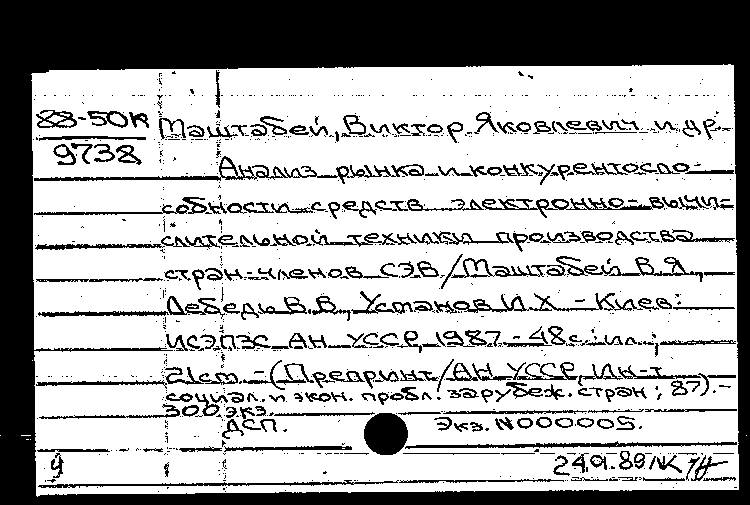 88-50К Маштабей, Виктор Яковлевич и др.
9738
Анализ рынка и конкурентоспо-
собности средств электронно-вычи-
слительной техники производства
стран-членов СЭВ/Маштабей В.Я.,
Лебедь В.В., Установ И.Х. - Киев:
ИСЭПЗС АН УССР, 1987. - 48с.:ил.;
21см. - (Препринт/АН УССР, Ин-т
социал. и экон. пробл. зарубеж. стран; 87). -
300 экз.
ДСП. Экз. N000005.
9 24.01.89